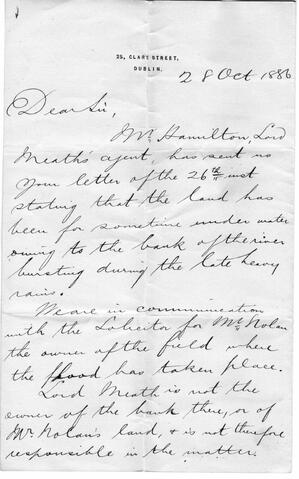 25, CLARE STREET,
DUBLIN.
28 Oct 1886
Dear Sir,
Mr. Hamilton, Lord
Meath's agent, has sent us
your letter of the 26th inst
stating that the land has
been for sometime under water
owing to the bank of the river
bursting during the late heavy
rains.
We are in communication
with the Solicitor for Mr. Nolan
the owner of the field where
the flood has taken place.
Lord Meath is not the
owner of the bank there, or of
Mr. Nolan's land, & is not therefore
responsible in the matter.